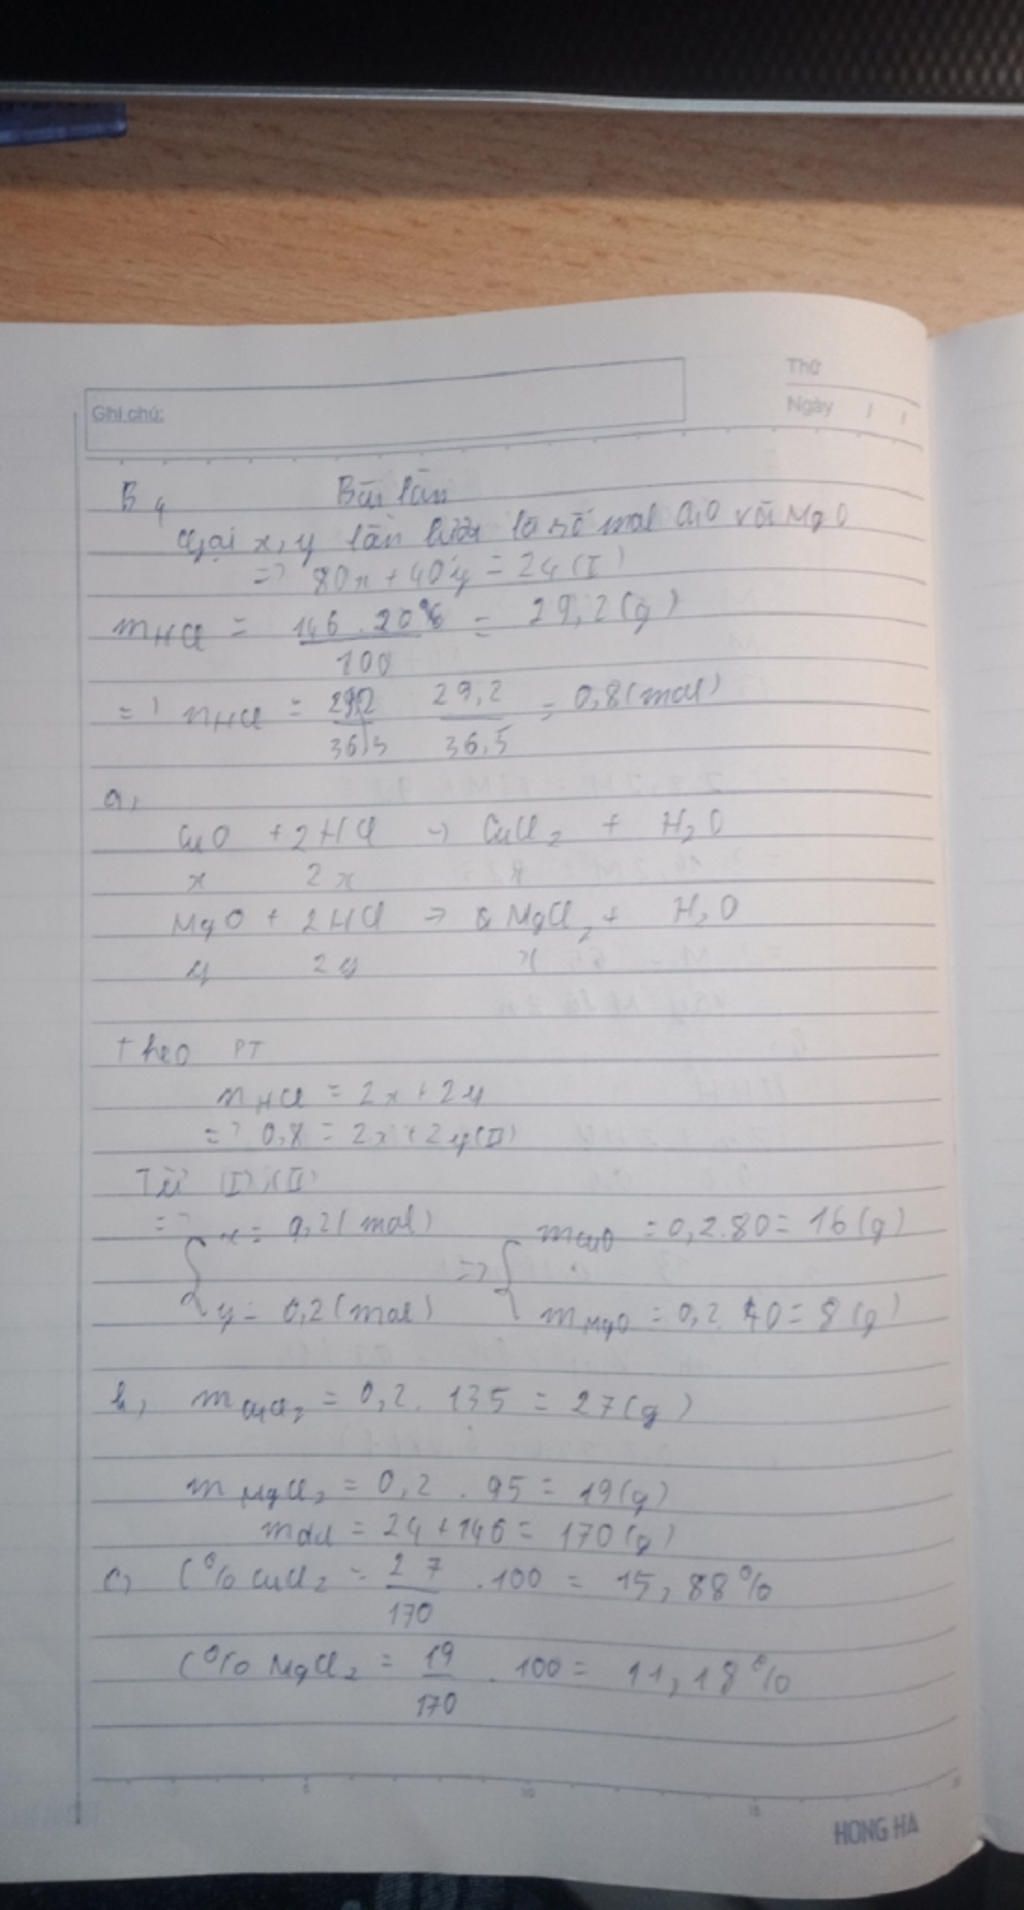 Thứ
Ghi chú:
Ngày / /
B4 Bài làm
Gọi x, y lần lượt là số mol CuO và MgO
=> 80x + 40y = 24 (I)
mHCl = 146 . 20% / 100 = 29,2 (g)
=> nHCl = 29,2 / 36,5 29,2 / 36,5 = 0,8 (mol)
a,
CuO + 2HCl -> CuCl2 + H2O
x 2x
MgO + 2HCl -> MgCl2 + H2O
y 2y
Theo PT
nHCl = 2x + 2y
=> 0,8 = 2x + 2y (II)
Từ (I), (II)
=> x = 0,2 (mol) => mCuO = 0,2.80 = 16 (g)
y = 0,2 (mol) mMgO = 0,2.40 = 8 (g)
b, mCuCl2 = 0,2 . 135 = 27 (g)
mMgCl2 = 0,2 . 95 = 19 (g)
mdd = 24 + 146 = 170 (g)
c, C% CuCl2 = 27 / 170 . 100 = 15,88%
C% MgCl2 = 19 / 170 . 100 = 11,18%
5 10 15
HONG HA